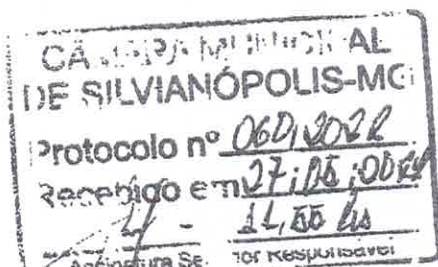 CÂMARA MUNICIPAL
DE SILVIANÓPOLIS-MG
Protocolo nº 060,2022
Recebido em 27
Assinatura Se. Responsável